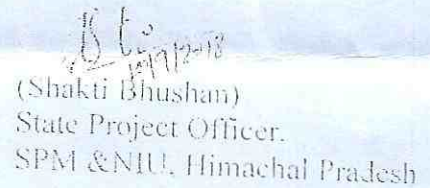 (Shakti Bhushan)
State Project Officer.
SPM &NIU, Himachal Pradesh